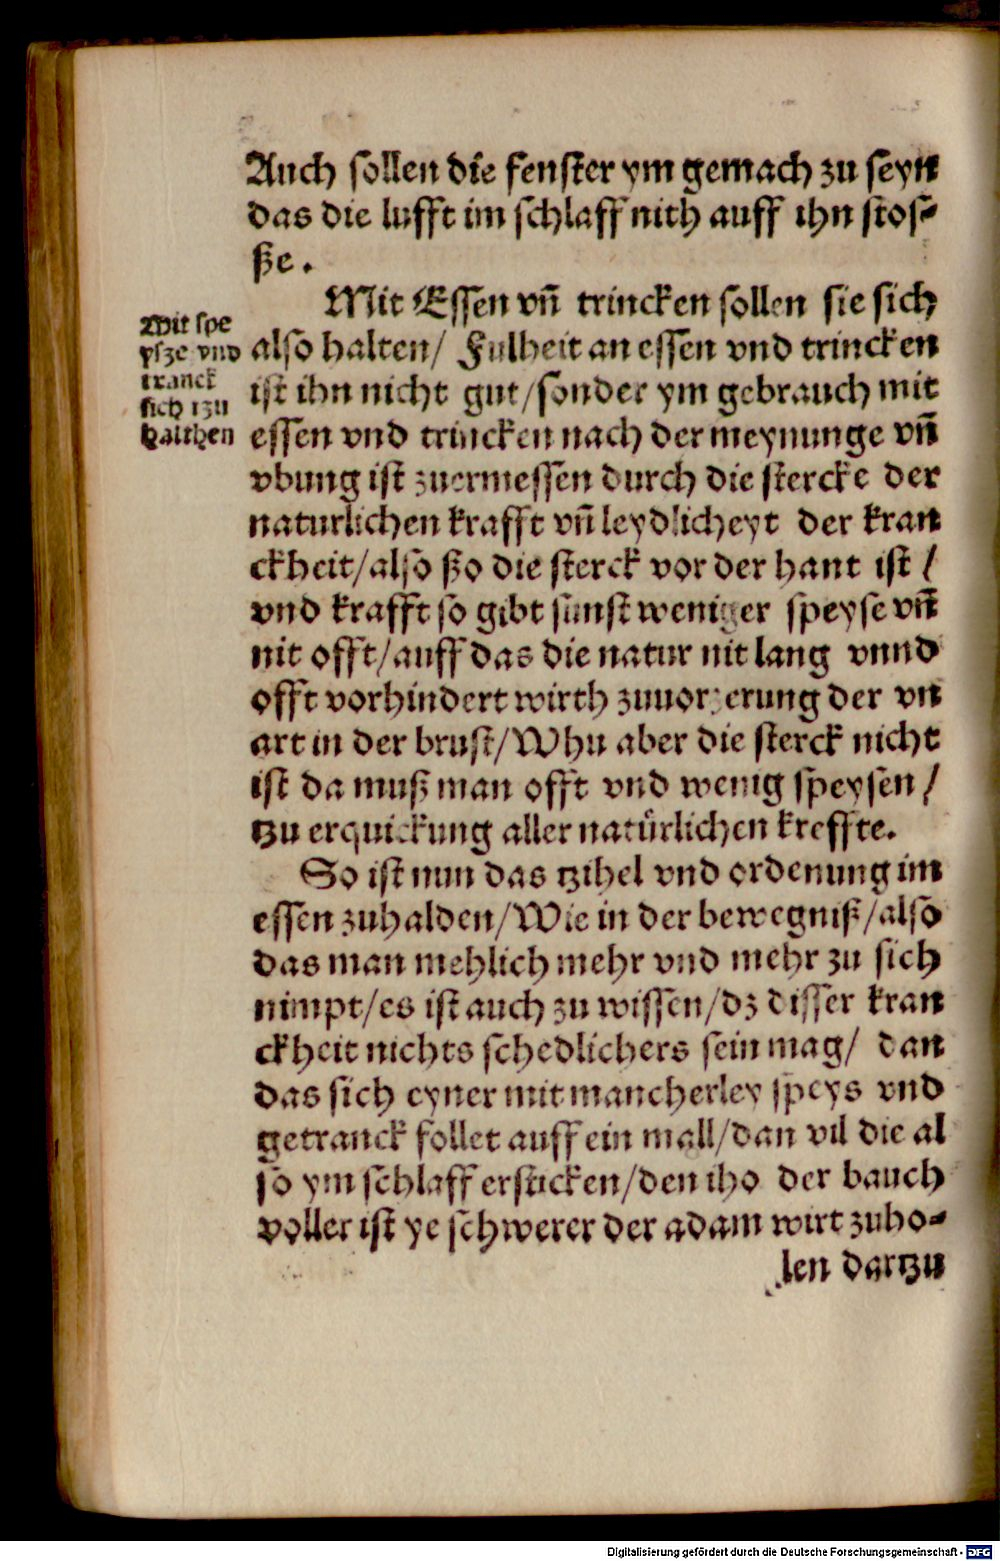 Auch sollen die fenster ym gemach zu seyn
das die lufft im schlaff nith auff ihn stos⸗
ße.
Mit Essen vñ trincken sollen sie sich
also halten/ Fulheit an essen vnd trincken
ist ihn nicht gut/sonder ym gebrauch mit
essen vnd trincken nach der meynunge vñ
vbung ist zuermessen durch die stercke der
naturlichen krafft vñ leydlicheyt der kran
ckheit/also ßo die sterck vor der hant ist /
vnd krafft so gibt sunst weniger speyse vñ
nit offt/auff das die natur nit lang vnnd
offt vorhindert wirth zuuorzerung der vn
art in der brust/Whu aber die sterck nicht
ist da muß man offt vnd wenig speysen /
tzu erquickung aller natürlichen kreffte.
So ist nun das tzihel vnd ordenung im
essen zuhalden/Wie in der bewegniß/also
das man mehlich mehr vnd mehr zu sich
nimpt/es ist auch zu wissen/dz disser kran
ckheit nichts schedlichers sein mag/ dan
das sich eyner mit mancherley speys vnd
getranck follet auff ein mall/dan vil die al
so ym schlaff ersticken/den iho der bauch
voller ist ye schwerer der adam wirt zuho⸗
len dartzu
Mit spe
ysze vnd
tranck
sich tzu
halthen
Digitalisierung gefördert durch die Deutsche Forschungsgemeinschaft - DFG